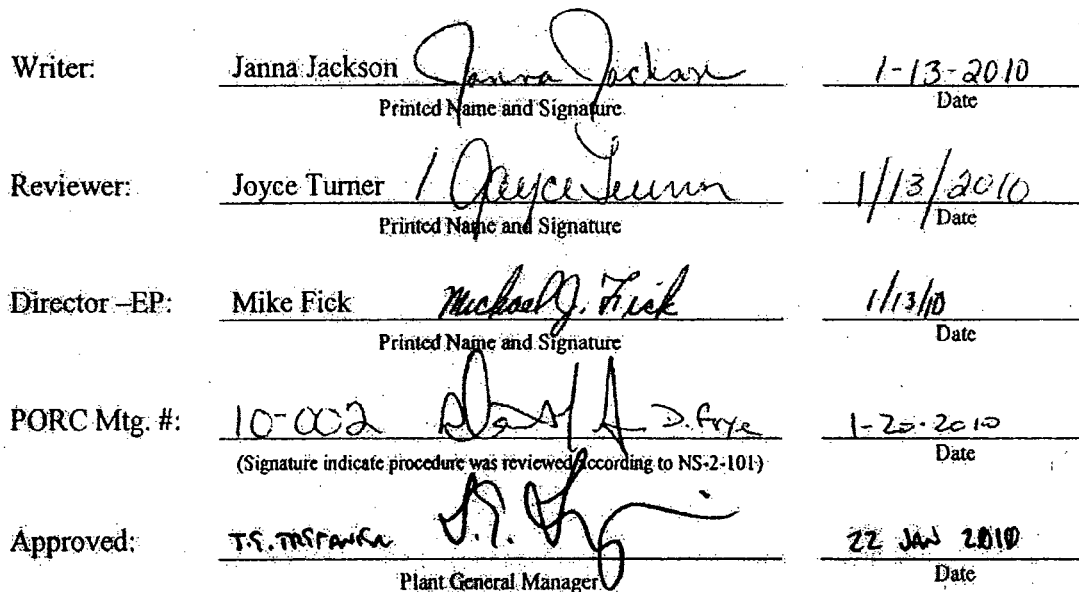 Writer: Janna Jackson Janna Jackson 1-13-2010
Printed Name and Signature Date
Reviewer: Joyce Turner / Joyce Turner 1/13/2010
Printed Name and Signature Date
Director –EP: Mike Fick Michael J. Fick 1/13/10
Printed Name and Signature Date
PORC Mtg. #: 10-002 D. Frye 1-20-2010
(Signature indicate procedure was reviewed according to NS-2-101) Date
Approved: 22 JAN 2010
Plant General Manager Date